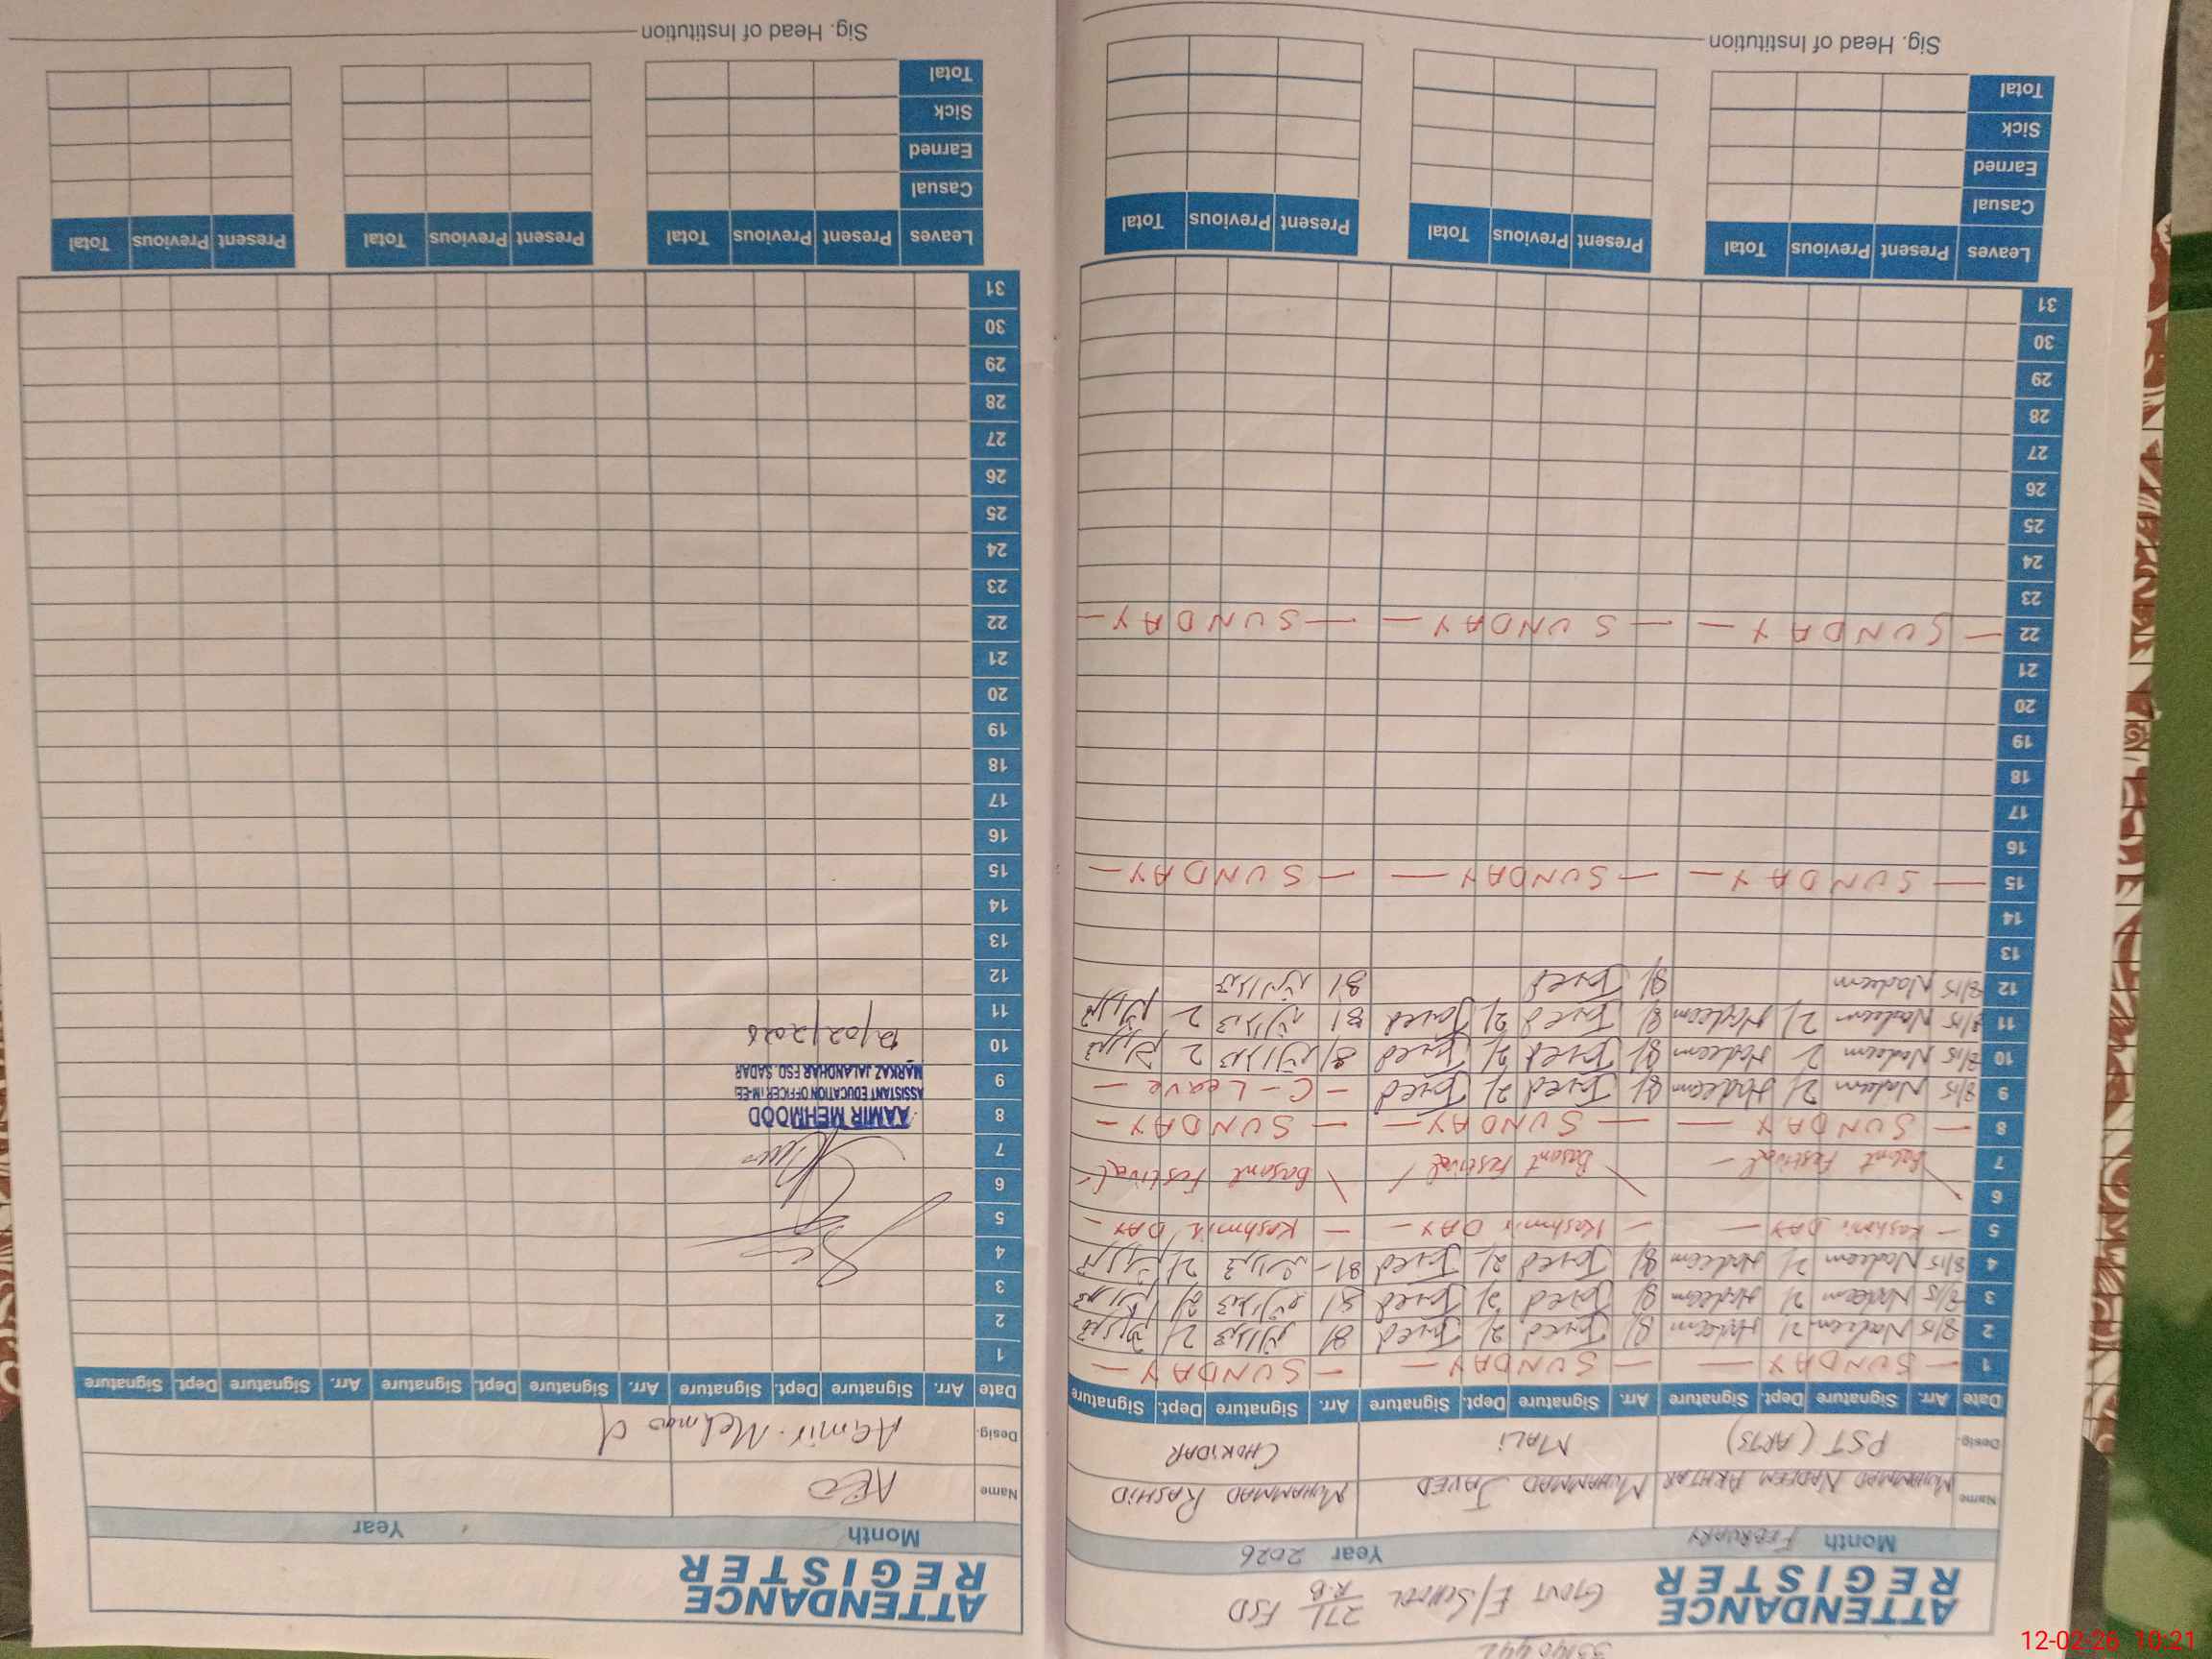 33140442
ATTENDANCE REGISTER
GOVT E/SCHOOL 271 R.B FSD
Month FEBRUARY Year 2026
Name MUHAMMAD NADEEM AKHTAR MUHAMMAD JAVED MUHAMMAD RASHID
Desig. PST (ARTS) MALI CHOKIDAR
Date Arr. Signature Dept. Signature Arr. Signature Dept. Signature Arr. Signature Dept. Signature
1 — SUNDAY — — SUNDAY — — SUNDAY —
2 8/15 Nadeem 2/ Nadeem 8/ Javed 2/ Javed 8/ 2
3 8/15 Nadeem 2/ Nadeem 8/ Javed 2/ Javed 8/ 2/
4 8/15 Nadeem 2/ Nadeem 8/ Javed 2/ Javed 8/ 2/
5 — Kashmir DAY — — Kashmir DAY — — Kashmir DAY —
6
7 Basant Festival — Basant Festival Basant Festival
8 — SUNDAY — — SUNDAY — — SUNDAY —
9 8/15 Nadeem 2/ Nadeem 8/ Javed 2/ Javed — C-Leave —
10 8/15 Nadeem 2 Nadeem 8/ Javed 2/ Javed 8/ 2
11 8/15 Nadeem 2/ Nadeem 8/ Javed 2/ Javed 8/ 2
12 8/15 Nadeem 8/ Javed 8/
13
14
15 — SUNDAY — — SUNDAY — — SUNDAY —
16
17
18
19
20
21
22 — SUNDAY — — SUNDAY — — SUNDAY —
23
24
25
26
27
28
29
30
31
Leaves Present Previous Total Present Previous Total Present Previous Total
Casual
Earned
Sick
Total
Sig. Head of Institution
ATTENDANCE REGISTER
Month Year
Name AEO
Desig. Aamir Mehmood
Date Arr. Signature Dept. Signature Arr. Signature Dept. Signature Arr. Signature Dept. Signature
1
2
3
4
5
6
7
8 AAMIR MEHMOOD
ASSISTANT EDUCATION OFFICER (M-EE)
9 MARKAZ JALANDHAR FSD SADAR
10 12/02/2026
11
12
13
14
15
16
17
18
19
20
21
22
23
24
25
26
27
28
29
30
31
Leaves Present Previous Total Present Previous Total Present Previous Total
Casual
Earned
Sick
Total
Sig. Head of Institution
12-02-26 10:21